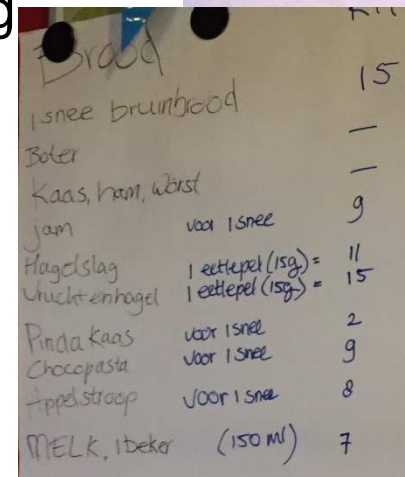 g
Brood
1 snee bruinbrood 15
Boter —
Kaas, ham, worst —
jam voor 1 snee 9
Hagelslag 1 eetlepel (15g) = 11
Vruchtenhagel 1 eetlepel (15g) = 15
Pindakaas voor 1 snee 2
Chocopasta voor 1 snee 9
Appelstroop voor 1 snee 8
MELK, 1 beker (150 ml) 7